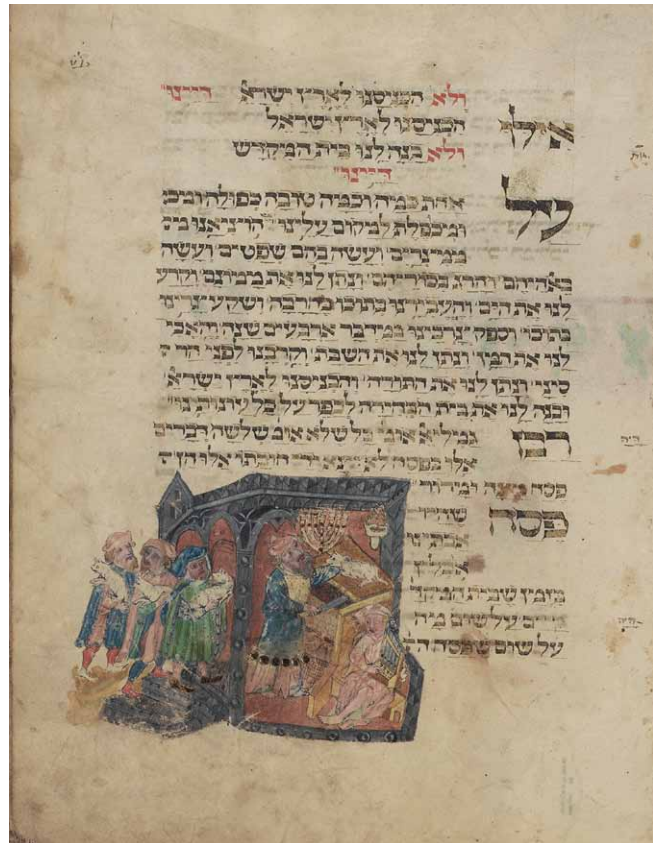 ולא הכניסנו לארץ ישרא דיינו
אילו הכניסנו לארץ ישראל
ולא בנה לנו בית המקדש
דיינו
על אחת כמה וכמה טובה כפולה ומכ
ומכופלת למקום עלינו הוציאנו
ממצרים ועשה בהם שפטים ועשה
באלהיהם והרג בכוריהם ונתן לנו את ממונם וקרע
לנו את הים והעבירנו בתוכו בחרבה ושקע צרינו
בתוכו וספק צרכינו במדבר ארבעים שנה והאכי
לנו את המן ונתן לנו את השבת וקרבנו לפני הר ס
סיני ונתן לנו את התורה והכניסנו לארץ ישרא
ובנה לנו את בית הבחירה לכפר על כל עוונותינו
רבן גמליא אומ כל שלא אומ שלשה דברים
אלו בפסח לא יצא ידי חובתו אלו הן
פסח מצה ומרור
פסח שהיו
אבתינו
אוכלין
בזמן שבית המקד
קיים על שום מה
על שום שפסח